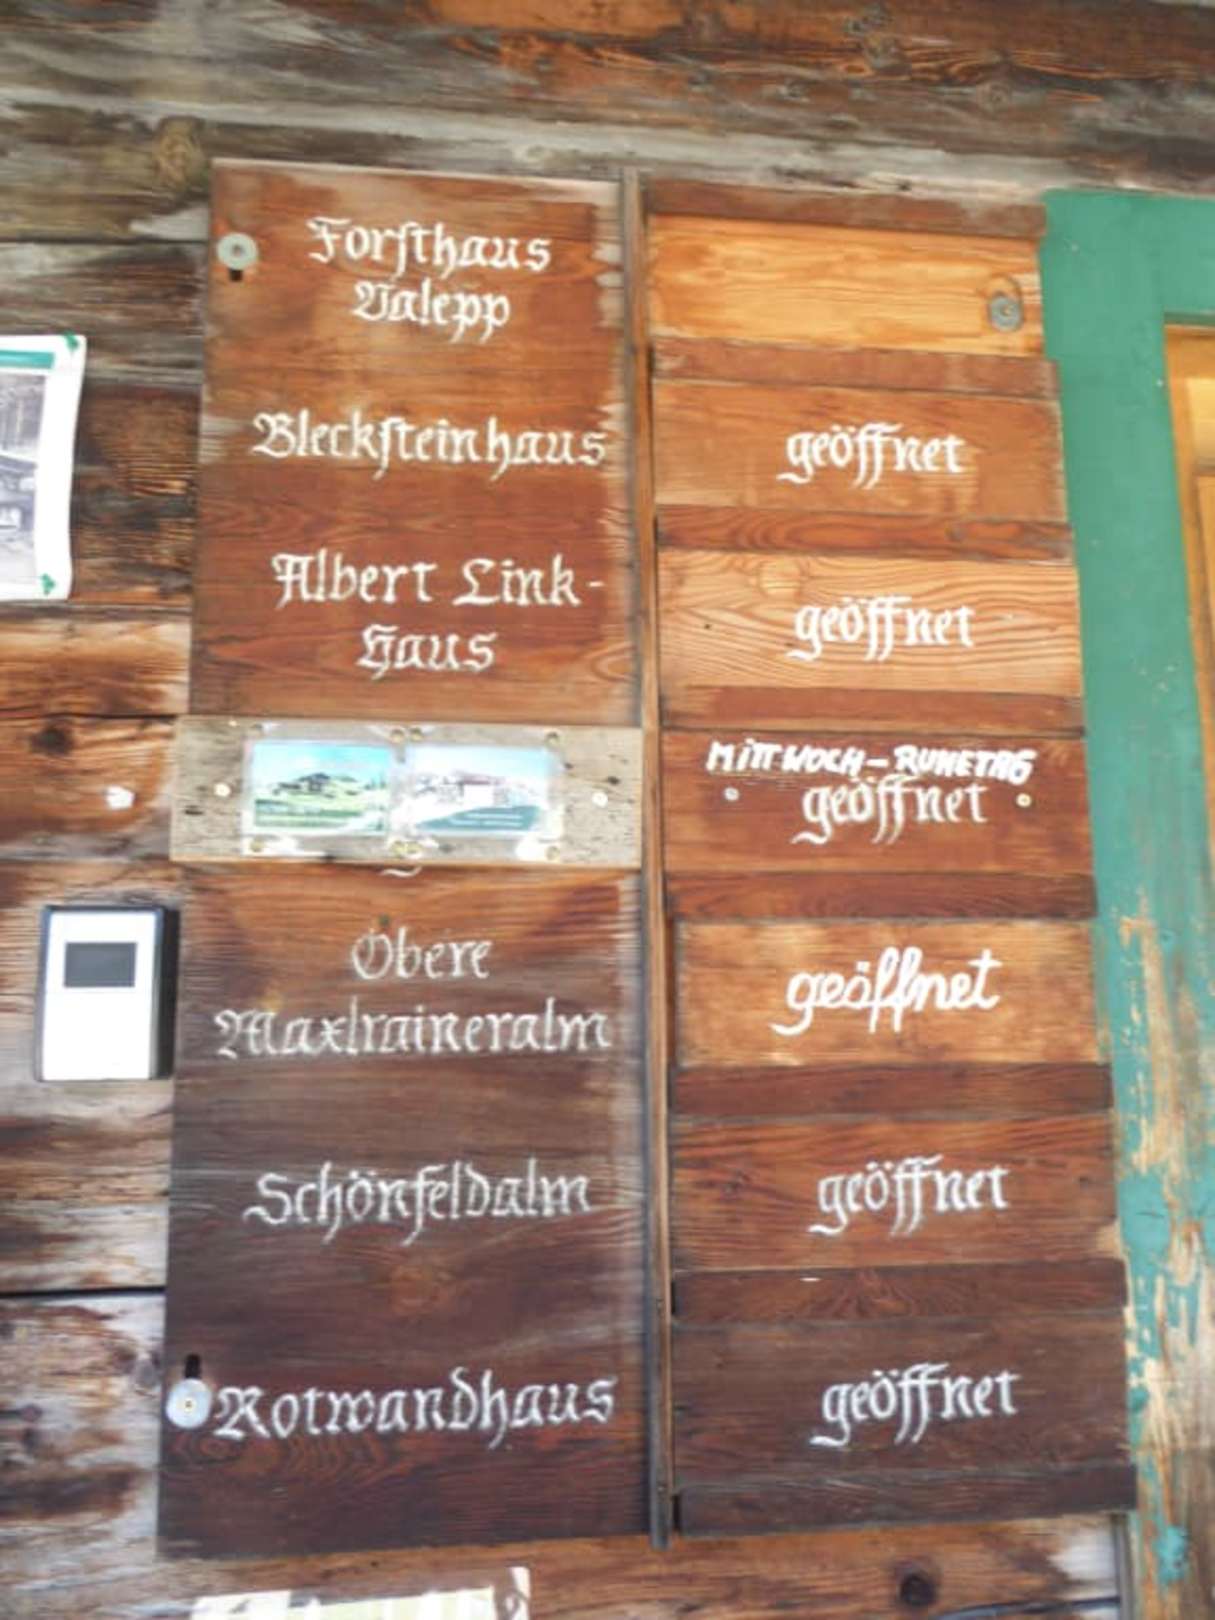 Forsthaus
Valepp
Blecksteinhaus
geöffnet
Albert Link-
Haus
geöffnet
MITTWOCH-RUHETAG
geöffnet
Obere
Maxlraineralm
geöffnet
Schönfeldalm
geöffnet
Rotwandhaus
geöffnet